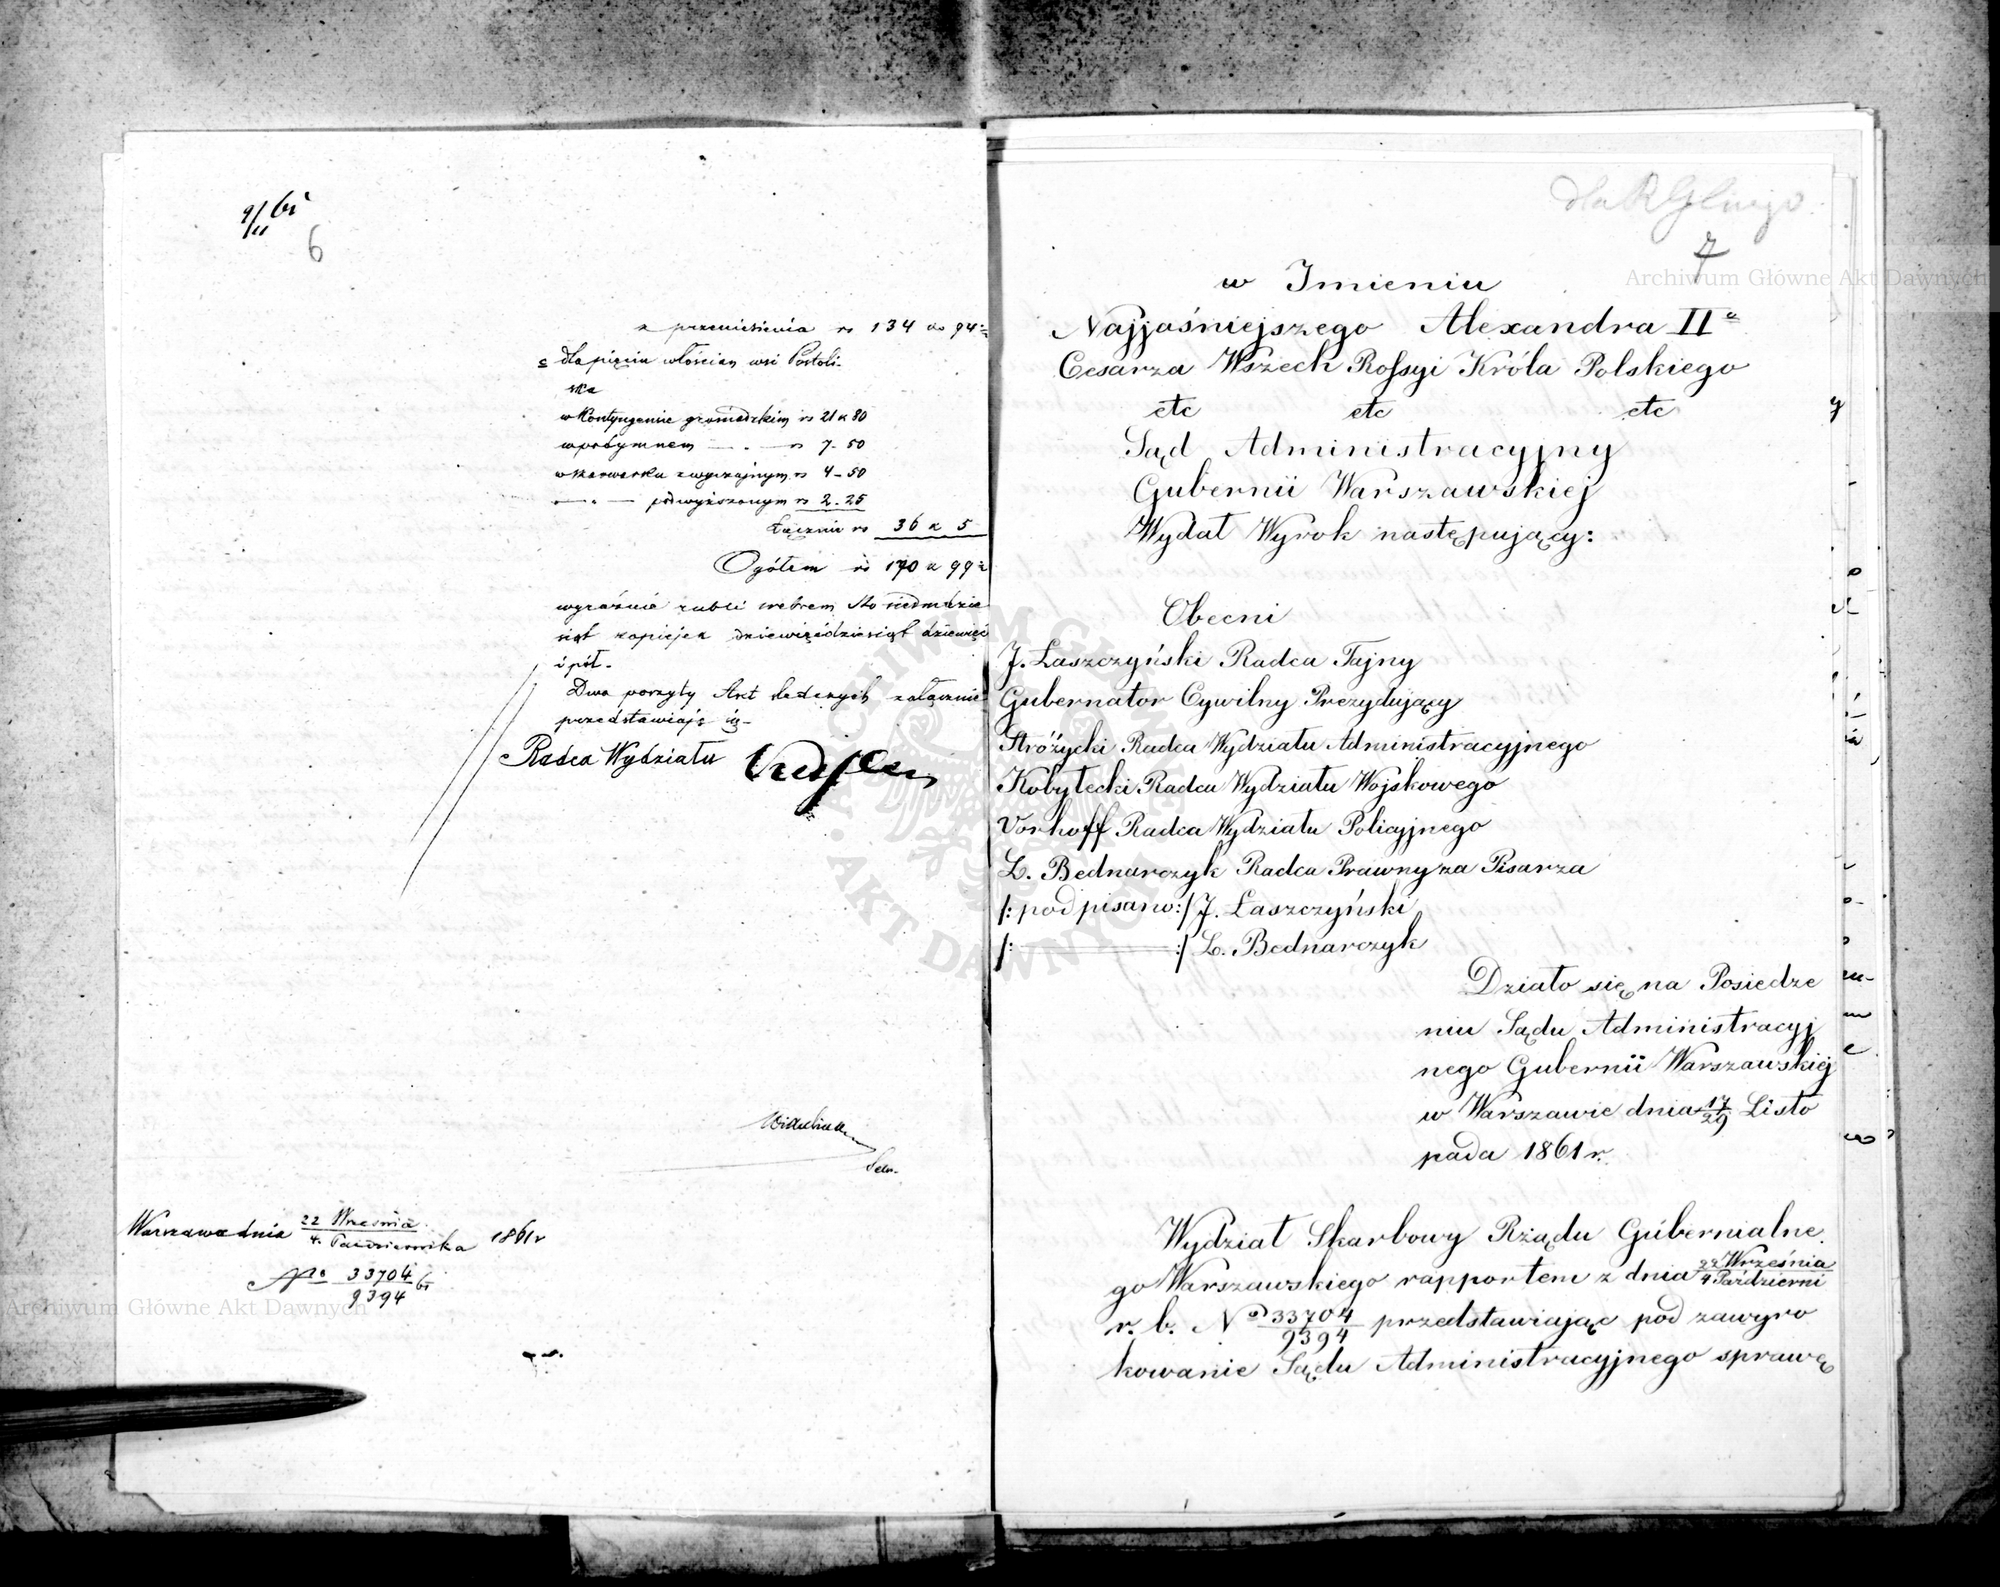 6
z przeniesienia rs 134 k 94½
c dla pięciu włościan wsi Postoli-
ska
w kontyngensie gromadzkim rs 21 k 80
w podymnem — " — rs 7 - 50
w szarwarku zwyczajnym rs 4 - 50
— " — podwyższonym rs 2 - 25
Łącznie rs 36 k 5
Ogółem rs 170 k 99½
wyraźnie rubli srebrem sto siedmdzie
siąt kopiejek dziewięćdziesiąt dziewięć
i pół.
Dwa poszyty Akt śledczych załącznie
przedstawiają się-
Radca Wydziału
Warszawa dnia 22 Września / 4 Października 1861 r
No 33704 / 9394
7
w Imieniu
Najjaśniejszego Alexandra IIo
Cesarza Wszech Rossyi Króla Polskiego
etc etc etc
Sąd Administracyjny
Gubernii Warszawskiej
Wydał Wyrok następujący:
Obecni
J. Łaszczyński Radca Tajny
Gubernator Cywilny Prezydujący
Stróżycki Radca Wydziału Administracyjnego
Kobyłecki Radca Wydziału Wojskowego
Vorhoff Radca Wydziału Policyjnego
L. Bednarczyk Radca Prawny za Pisarza
/: podpisano :/ J. Łaszczyński
/: ——— :/ L. Bednarczyk
Działo się na Posiedze
niu Sądu Administracyj
nego Gubernii Warszawskiej
w Warszawie dnia 17/29 Listo
pada 1861 r.
Wydział Skarbowy Rządu Gubernialne
go Warszawskiego rapportem z dnia 22 Września / 4 Październi
r. b. No 33704 / 9394 przedstawiając pod zawyro
kowanie Sądu Administracyjnego sprawę
Archiwum Główne Akt Dawnych
Archiwum Główne Akt Dawnych
ARCHIWUM GŁÓWNE AKT DAWNYCH